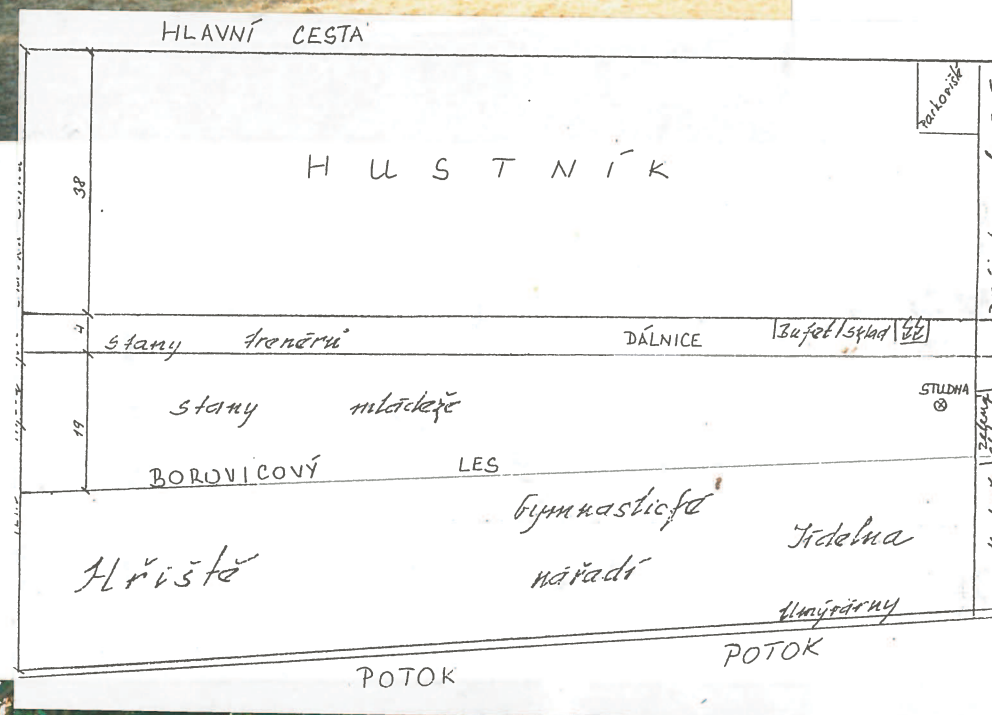 HLAVNÍ CESTA
Parkoviště
HUSTNÍK
38
4
stany trenérů
DÁLNICE
Bufet sklad
stany mládeže
STUDNA
19
BOROVICOVÝ LES
Gymnastické
nářadí
Jídelna
Hřiště
Umývárny
POTOK
POTOK